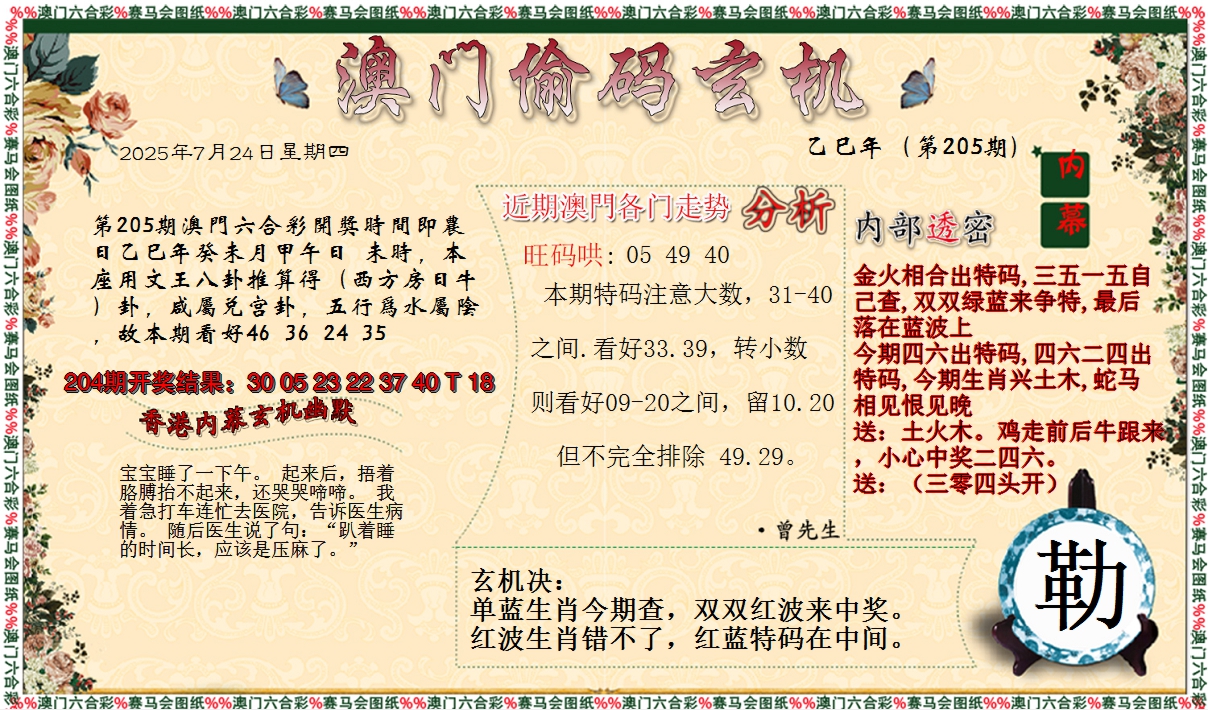 %%澳门六合彩%赛马会图纸%%澳门六合彩%赛马会图纸%%澳门六合彩%赛马会图纸%%澳门六合彩%赛马会图纸%%澳门六合彩%赛马会图纸%%澳门六合彩%赛马会图纸%%
澳门偷码玄机
2025年7月24日星期四
乙巳年（第205期）
内幕
第205期澳門六合彩開獎時間即農
日乙巳年癸未月甲午日 未時，本
座用文王八卦推算得（西方房日牛
）卦，咸屬兑宫卦，五行爲水屬陰
，故本期看好46 36 24 35
204期开奖结果：30 05 23 22 37 40 T 18
香港内幕玄机幽默
宝宝睡了一下午。 起来后，捂着
胳膊抬不起来，还哭哭啼啼。 我
着急打车连忙去医院，告诉医生病
情。 随后医生说了句：“趴着睡
的时间长，应该是压麻了。”
近期澳門各门走势 分析
旺码哄: 05 49 40
本期特码注意大数，31-40
之间.看好33.39，转小数
则看好09-20之间，留10.20
但不完全排除 49.29。
·曾先生
内部透密
金火相合出特码,三五一五自
己查,双双绿蓝来争特,最后
落在蓝波上
今期四六出特码,四六二四出
特码,今期生肖兴土木,蛇马
相见恨见晚
送：土火木。鸡走前后牛跟来
，小心中奖二四六。
送：（三零四头开）
玄机决：
单蓝生肖今期查，双双红波来中奖。
红波生肖错不了，红蓝特码在中间。
勒
%%澳门六合彩%赛马会图纸%%澳门六合彩%赛马会图纸%%澳门六合彩%赛马会图纸%%澳门六合彩%赛马会图纸%%澳门六合彩%赛马会图纸%%澳门六合彩%赛马会图纸%%